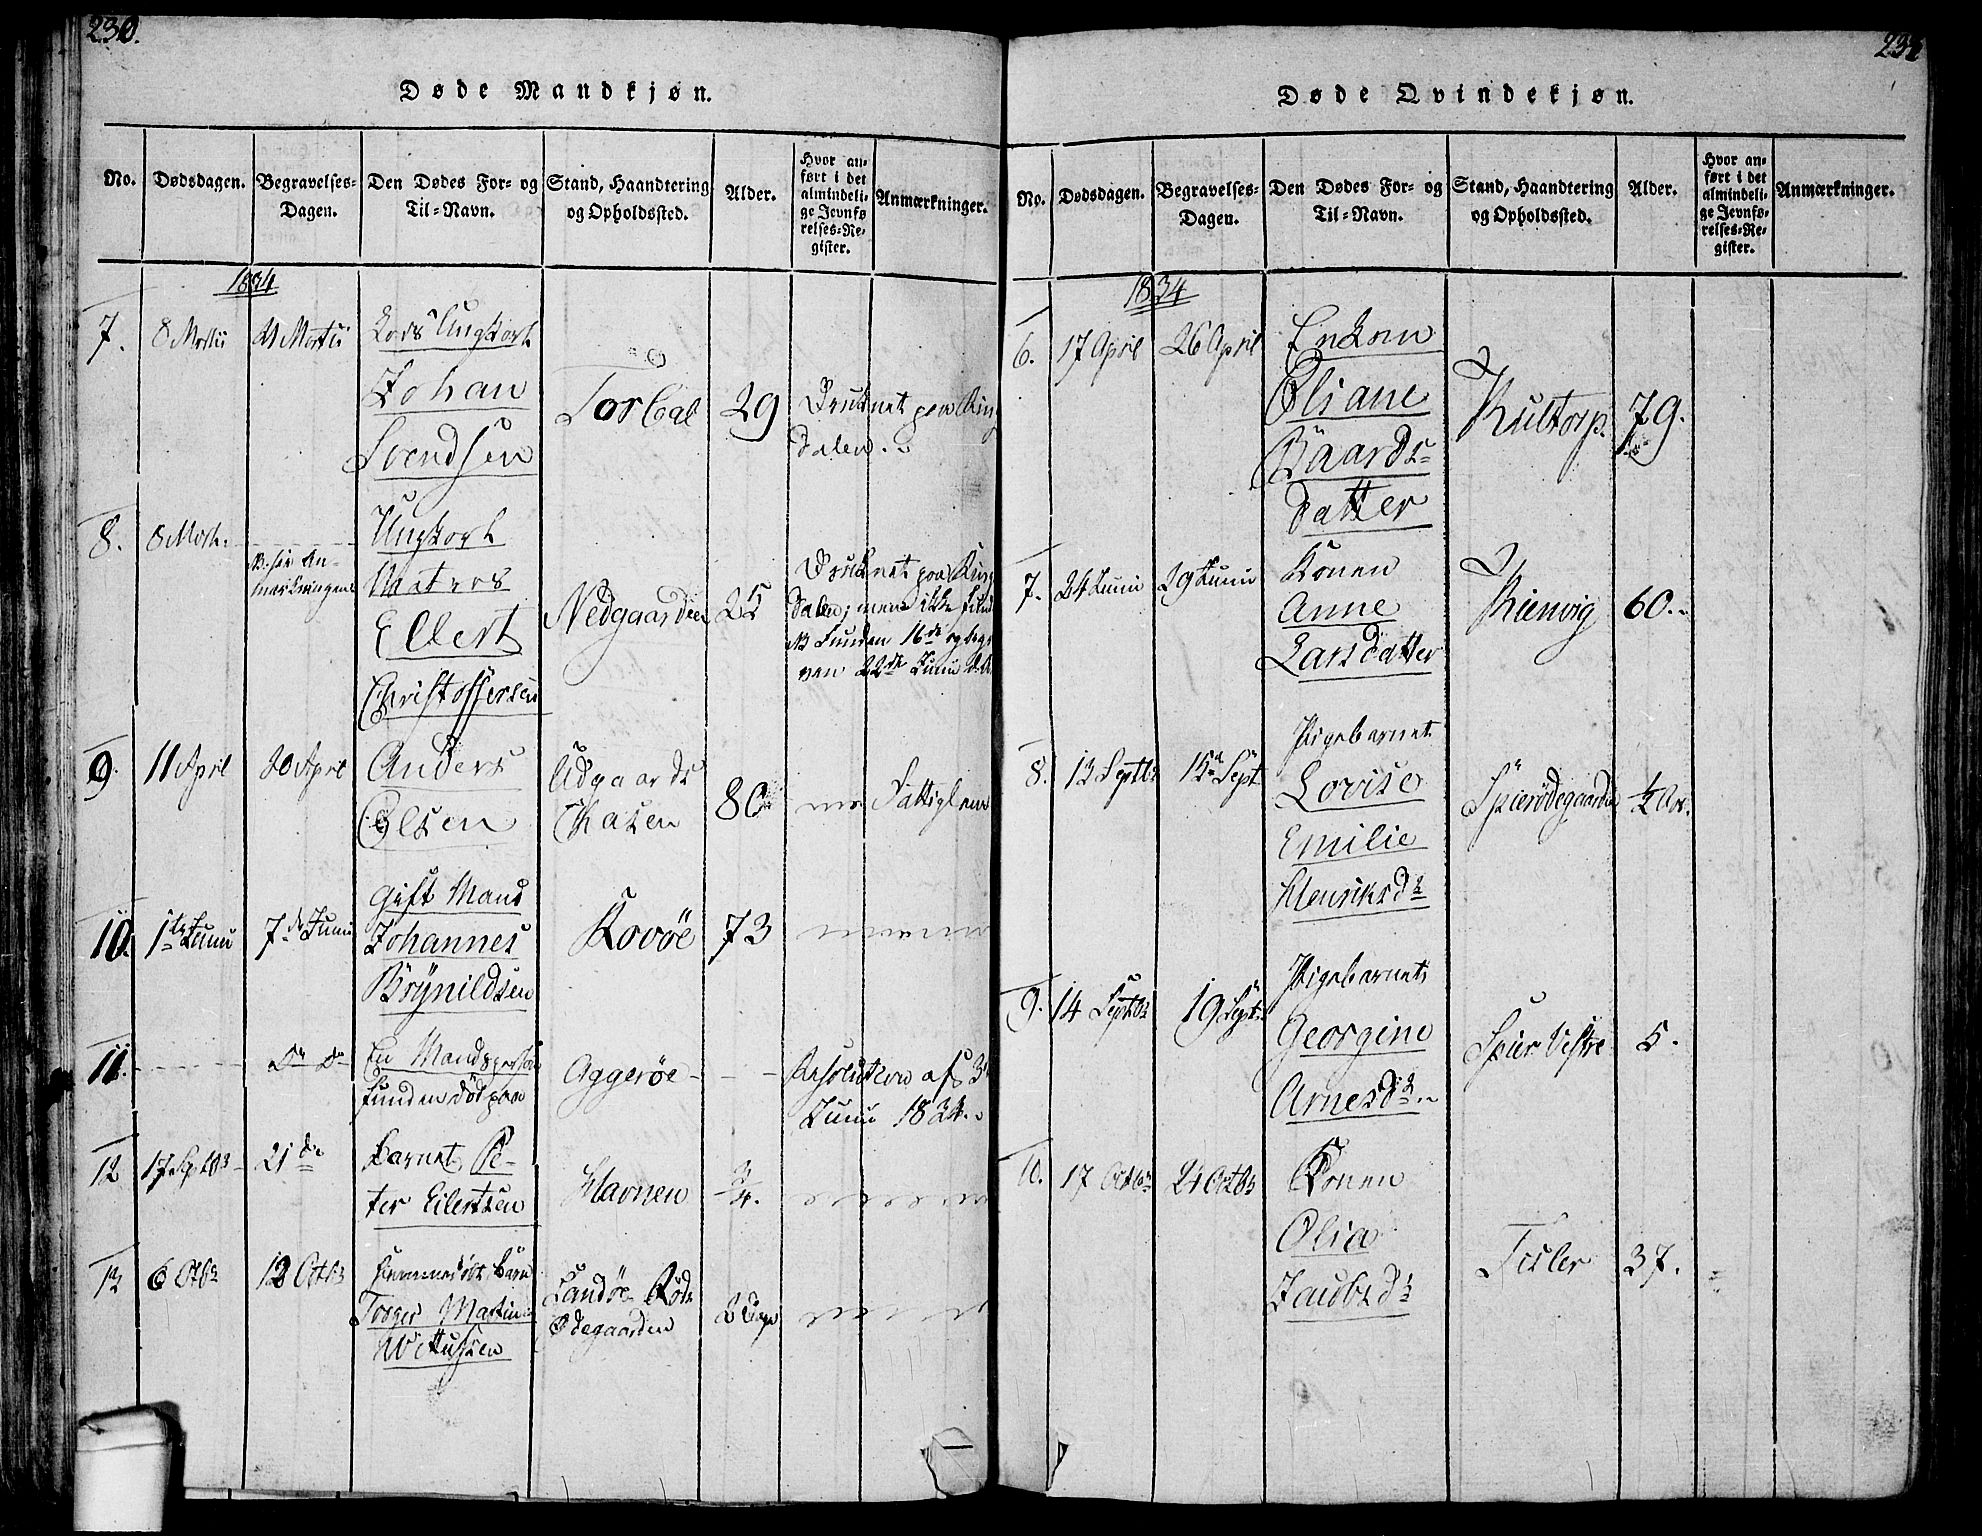 230.
Døde Mandkjøn.
No. Dødsdagen. Begravelses-Dagen. Den Dødes For- og Til-Navn. Stand, Haandtering og Opholdssted. Alder. Hvor anført i det almindelige Jevnførelses-Register. Anmærkninger.
1834
7. 8 Martii 21 Martii
Johan
Svendsen
Torbal 29
Druknet paa Rin
dalen.
8.
Ungkarl
Maters
Ellert
Christoffersen
Nedgaarden 25
Druknet paa Rin
dalen; men ikke fund
NB Funden 16de og begra
ven 22de Junii
9. 11 April 20 April
Anders
Olsen
Udgaards
80
10. 1te Junii 7de Junii
Gift Mand
Johannes
Brynildsen
Kovøe 73
11. Do Do
En Mandsperson
funden død paa
Aggerøe
Resolution af 3
Junii 1834.
12 17 Septbr 21de
Barnet Pe-
ter Eilertsen
Havnen 3/4.
13 6 Octbr 12 Octbr
Torger Martin
Landøe
Ødegaarden
2 Dage
Døde Qvindekjøn.
No. Dødsdagen. Begravelses-Dagen. Den Dødes For- og Til-Navn. Stand, Haandtering og Opholdssted. Alder. Hvor anført i det almindelige Jevnførelses-Register. Anmærkninger.
1834
6. 17 April 26 April
Enkom
Eliane
Baards-
datter
Kultorp. 79.
7. 24 Junii 29 Junii
Konen
Anne
Larsdatter
Kienvig 60.
8. 13 Septbr 15 Sept
Pigebarnet
Lovise
Emilie
Henriksdr
Spierødegaarden 1/2 Aar.
9. 14 Septbr 19 Septr
Pigebarnet
Georgine
Arnesdr
Spier Vestre 5.
10. 17 Octbr 24 Octbr
Konen
Olia
Jacobsdr
Tisler 37.